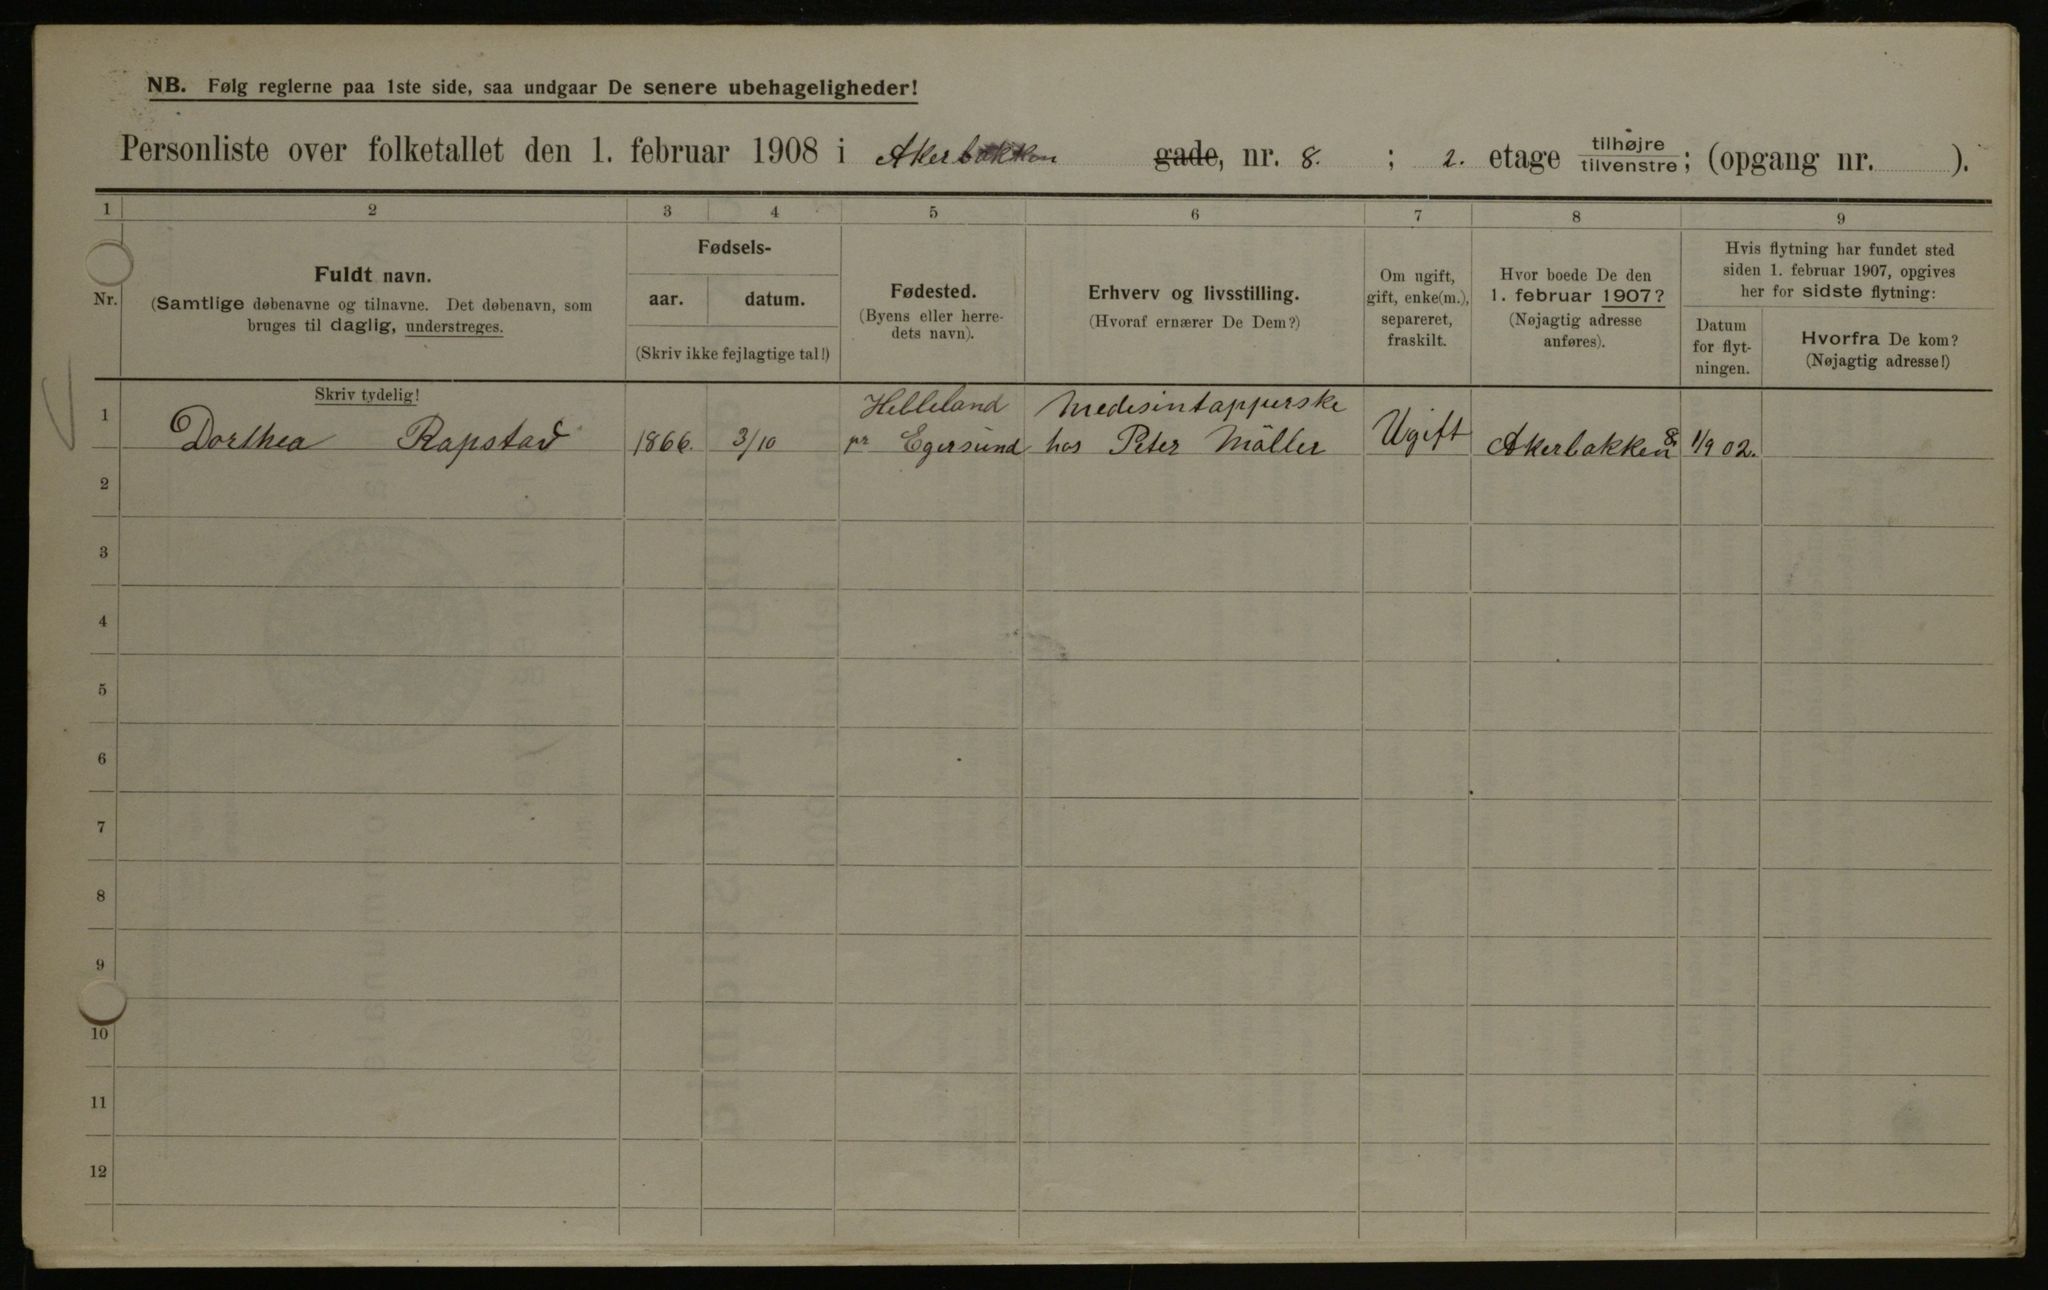 NB. Følg reglerne paa 1ste side, saa undgaar De senere ubehageligheder!
Personliste over folketallet den 1. februar 1908 i Akerbakken gade, nr. 8. ; 2. etage tilhøjre tilvenstre; (opgang nr. ).
1 2 3 4 5 6 7 8 9
Nr.
Fuldt navn.
(Samtlige døbenavne og tilnavne. Det døbenavn, som
bruges til daglig, understreges.
Skriv tydelig!
Fødsels-
aar. datum.
(Skriv ikke fejlagtige tal!)
Fødested.
(Byens eller herre-
dets navn).
Erhverv og livsstilling.
(Hvoraf ernærer De Dem?)
Om ugift,
gift, enke(m.),
separeret,
fraskilt.
Hvor boede De den
1. februar 1907?
(Nøjagtig adresse
anføres).
Hvis flytning har fundet sted
siden 1. februar 1907, opgives
her for sidste flytning:
Datum
for flyt-
ningen.
Hvorfra De kom?
(Nøjagtig adresse!)
Helleland Medesintapperske
1 Dorthea Rapstad 1866. 3/10 pr Egersund hos Peter Möller Ugift Akerbakken 8. 1/9 02.
2
3
4
5
6
7
8
9
10
11
12